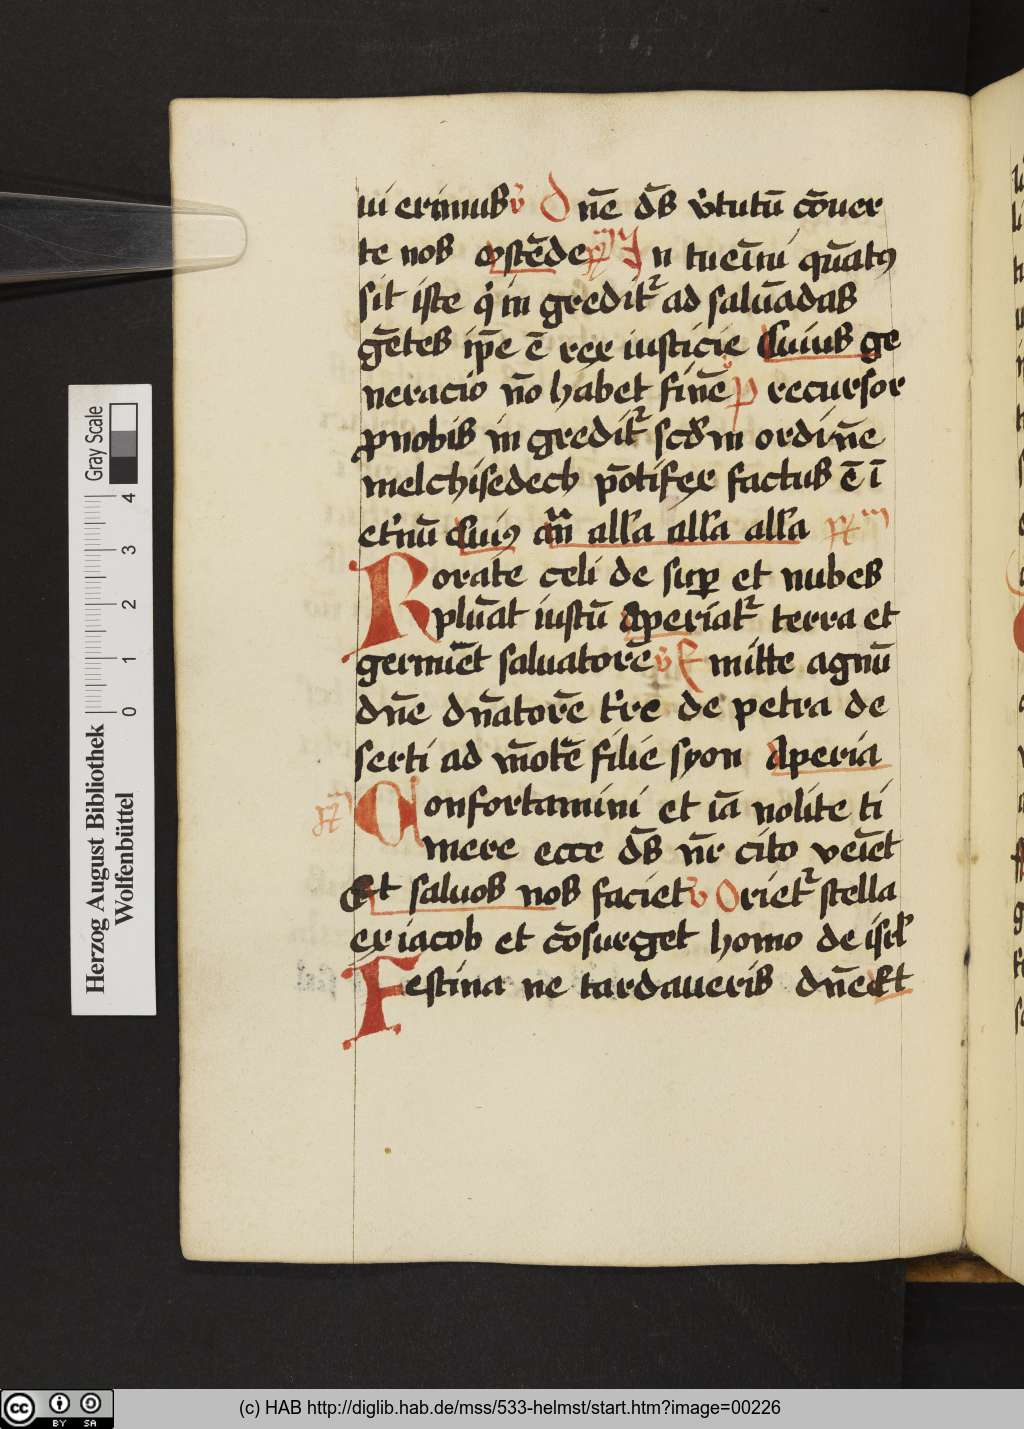 ui erimus v̄ Dn̄e ds̄ v̓tutū cōuer
te nos ostēde In tuemīni quātus
sit iste q̇ in gredit᷑ ad saluādas
gētes ip̄e ē rex iusticie Cuius ge
neracio nō habet finē p recursor
ꝓ nobis in gredit᷑ scd̄m ordinē
melchisedech pōtifex factus ē ī
et̓nū Cui9 am̄ all̓a all̓a all̓a
Rorate celi de suꝑ et nubes
pluāt iustū Aperiat᷑ terra et
germīet saluatorē v̄ E mitte agnū
dn̄e dn̄atorē t̓re de petra de
serti ad mōtē filie syon Aperia
Confortamini et iā nolite ti
mere ecce ds̄ nr̄ cito veīet
Et saluos nos faciet v̄ Oriet᷑ stella
ex iacob et cōsurget homo de isrl̓
Festina ne tardaueris dn̄e Et
Herzog August Bibliothek
Wolfenbüttel
0 1 2 3 4
Gray Scale
cc BY SA
(c) HAB http://diglib.hab.de/mss/533-helmst/start.htm?image=00226